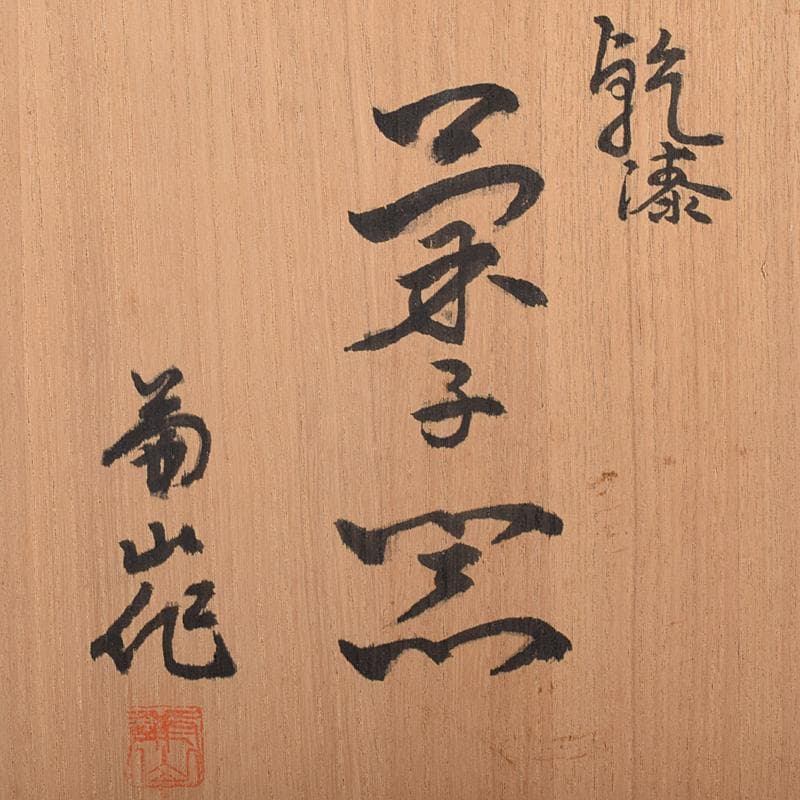 乾漆
菓子器
山作